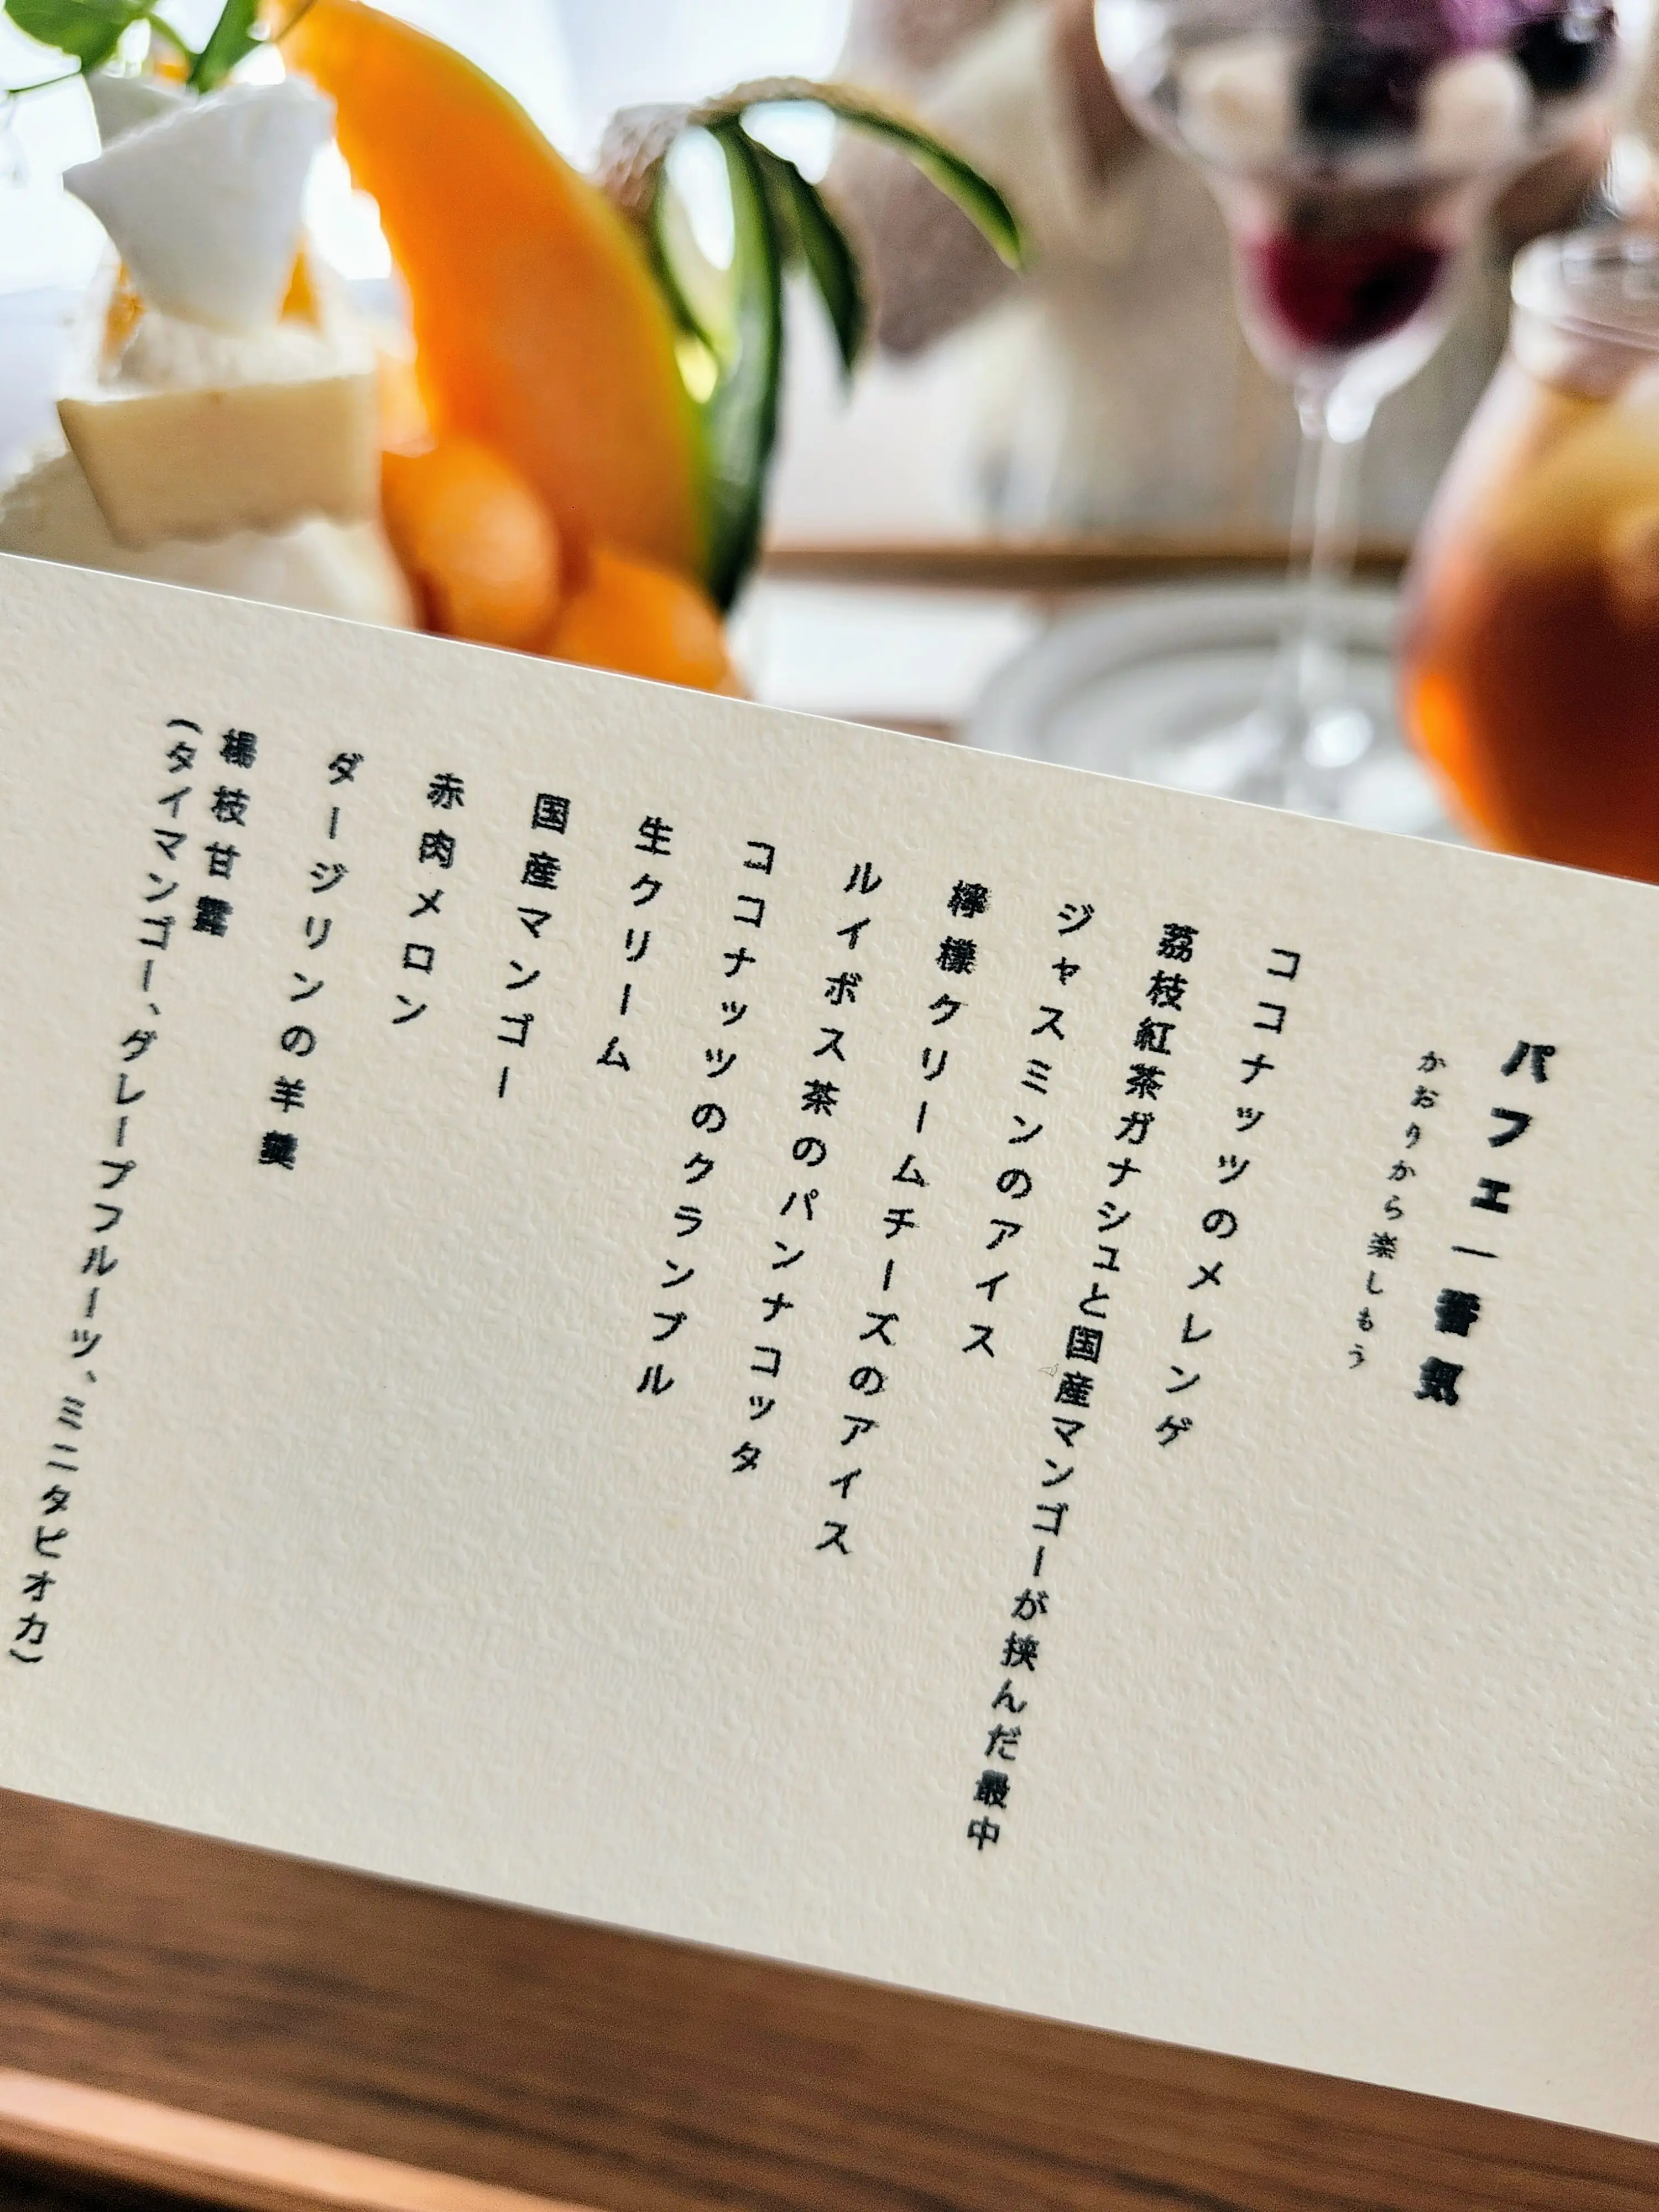 パフェ一番氣
かおりから楽しもう
ココナッツのメレンゲ
荔枝紅茶ガナシュと国産マンゴーが挟んだ最中
ジャスミンのアイス
檸檬クリームチーズのアイス
ルイボス茶のパンナコッタ
ココナッツのクランブル
生クリーム
国産マンゴー
赤肉メロン
ダージリンの羊羹
楊枝甘露
（タイマンゴー、グレープフルーツ、ミニタピオカ）